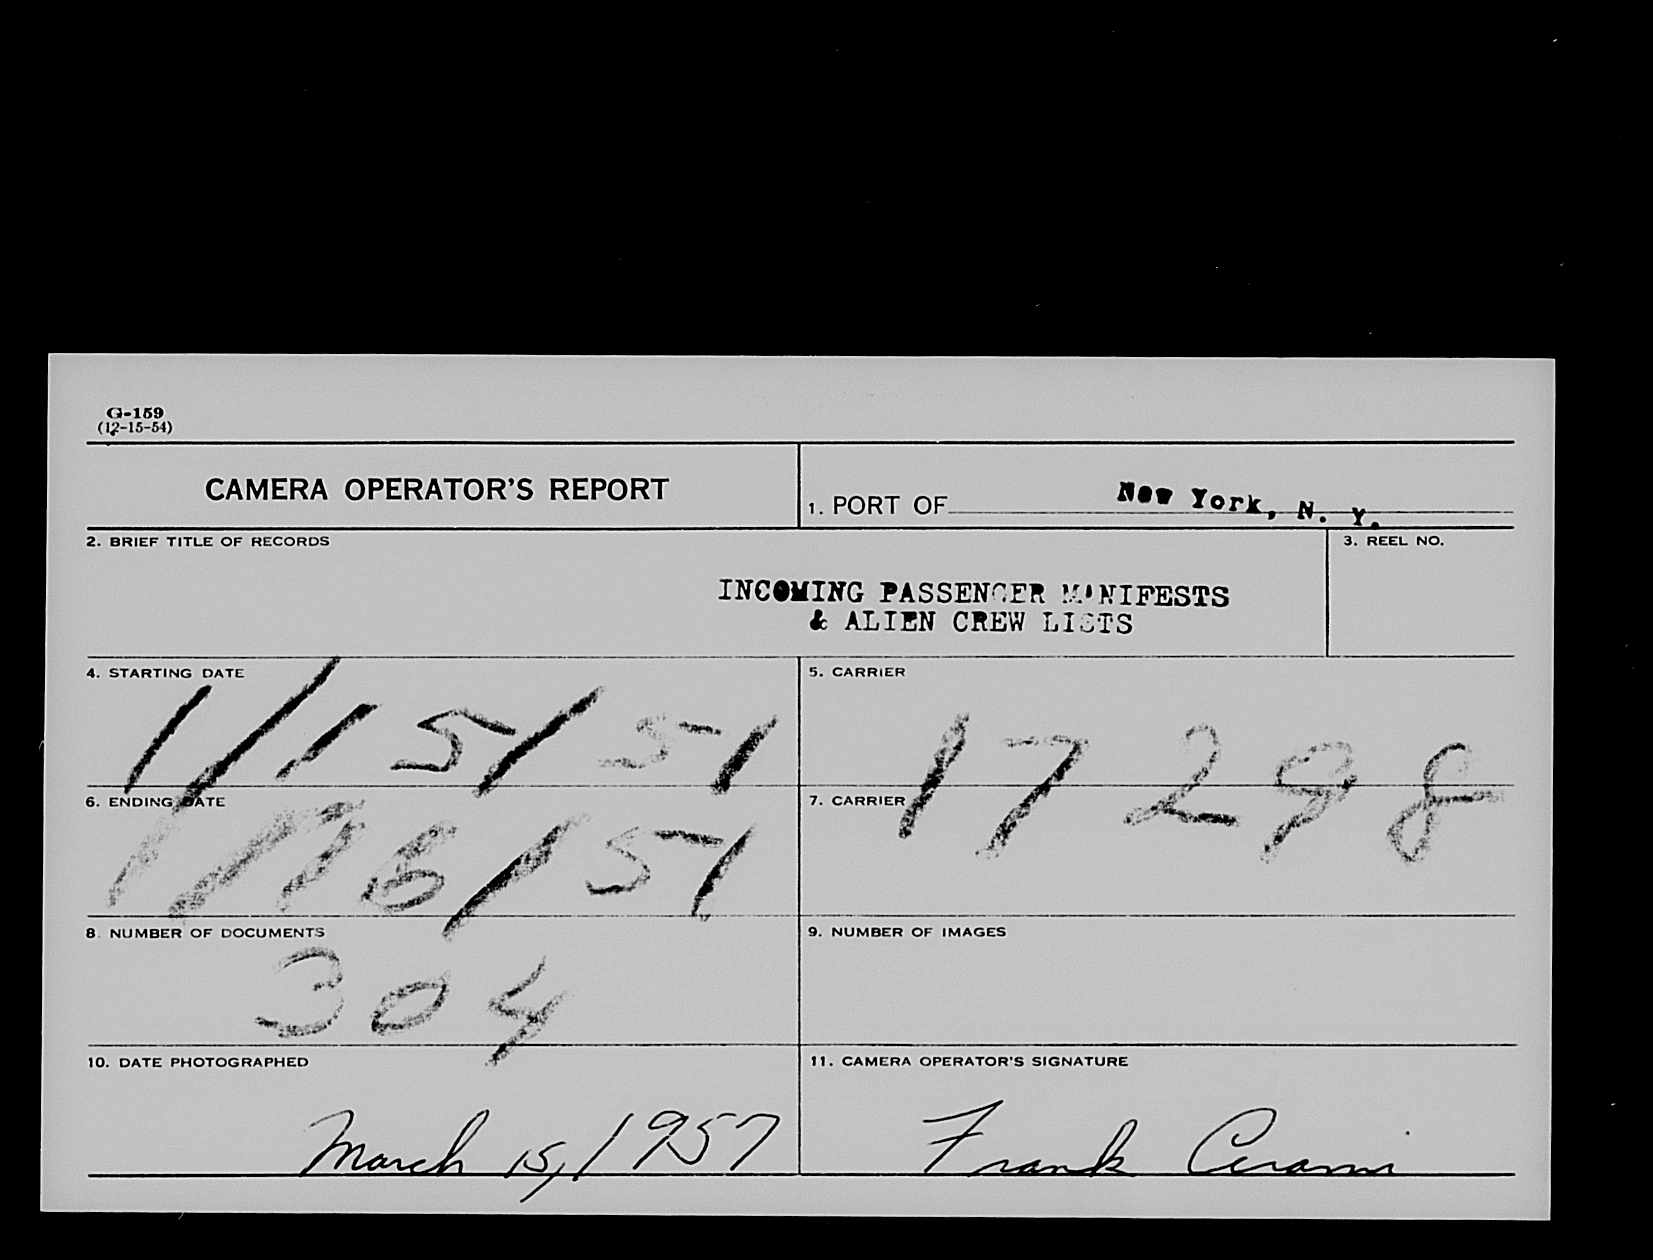 G-159
(12-15-54)
CAMERA OPERATOR'S REPORT
1. PORT OF New York, N. Y.
2. BRIEF TITLE OF RECORDS
3. REEL NO.
INCOMING PASSENGER MANIFESTS
& ALIEN CREW LISTS
4. STARTING DATE
1/15/51
5. CARRIER
17298
6. ENDING DATE
1/16/51
7. CARRIER
8. NUMBER OF DOCUMENTS
304
9. NUMBER OF IMAGES
10. DATE PHOTOGRAPHED
March 15, 1957
11. CAMERA OPERATOR'S SIGNATURE
Frank Cerami